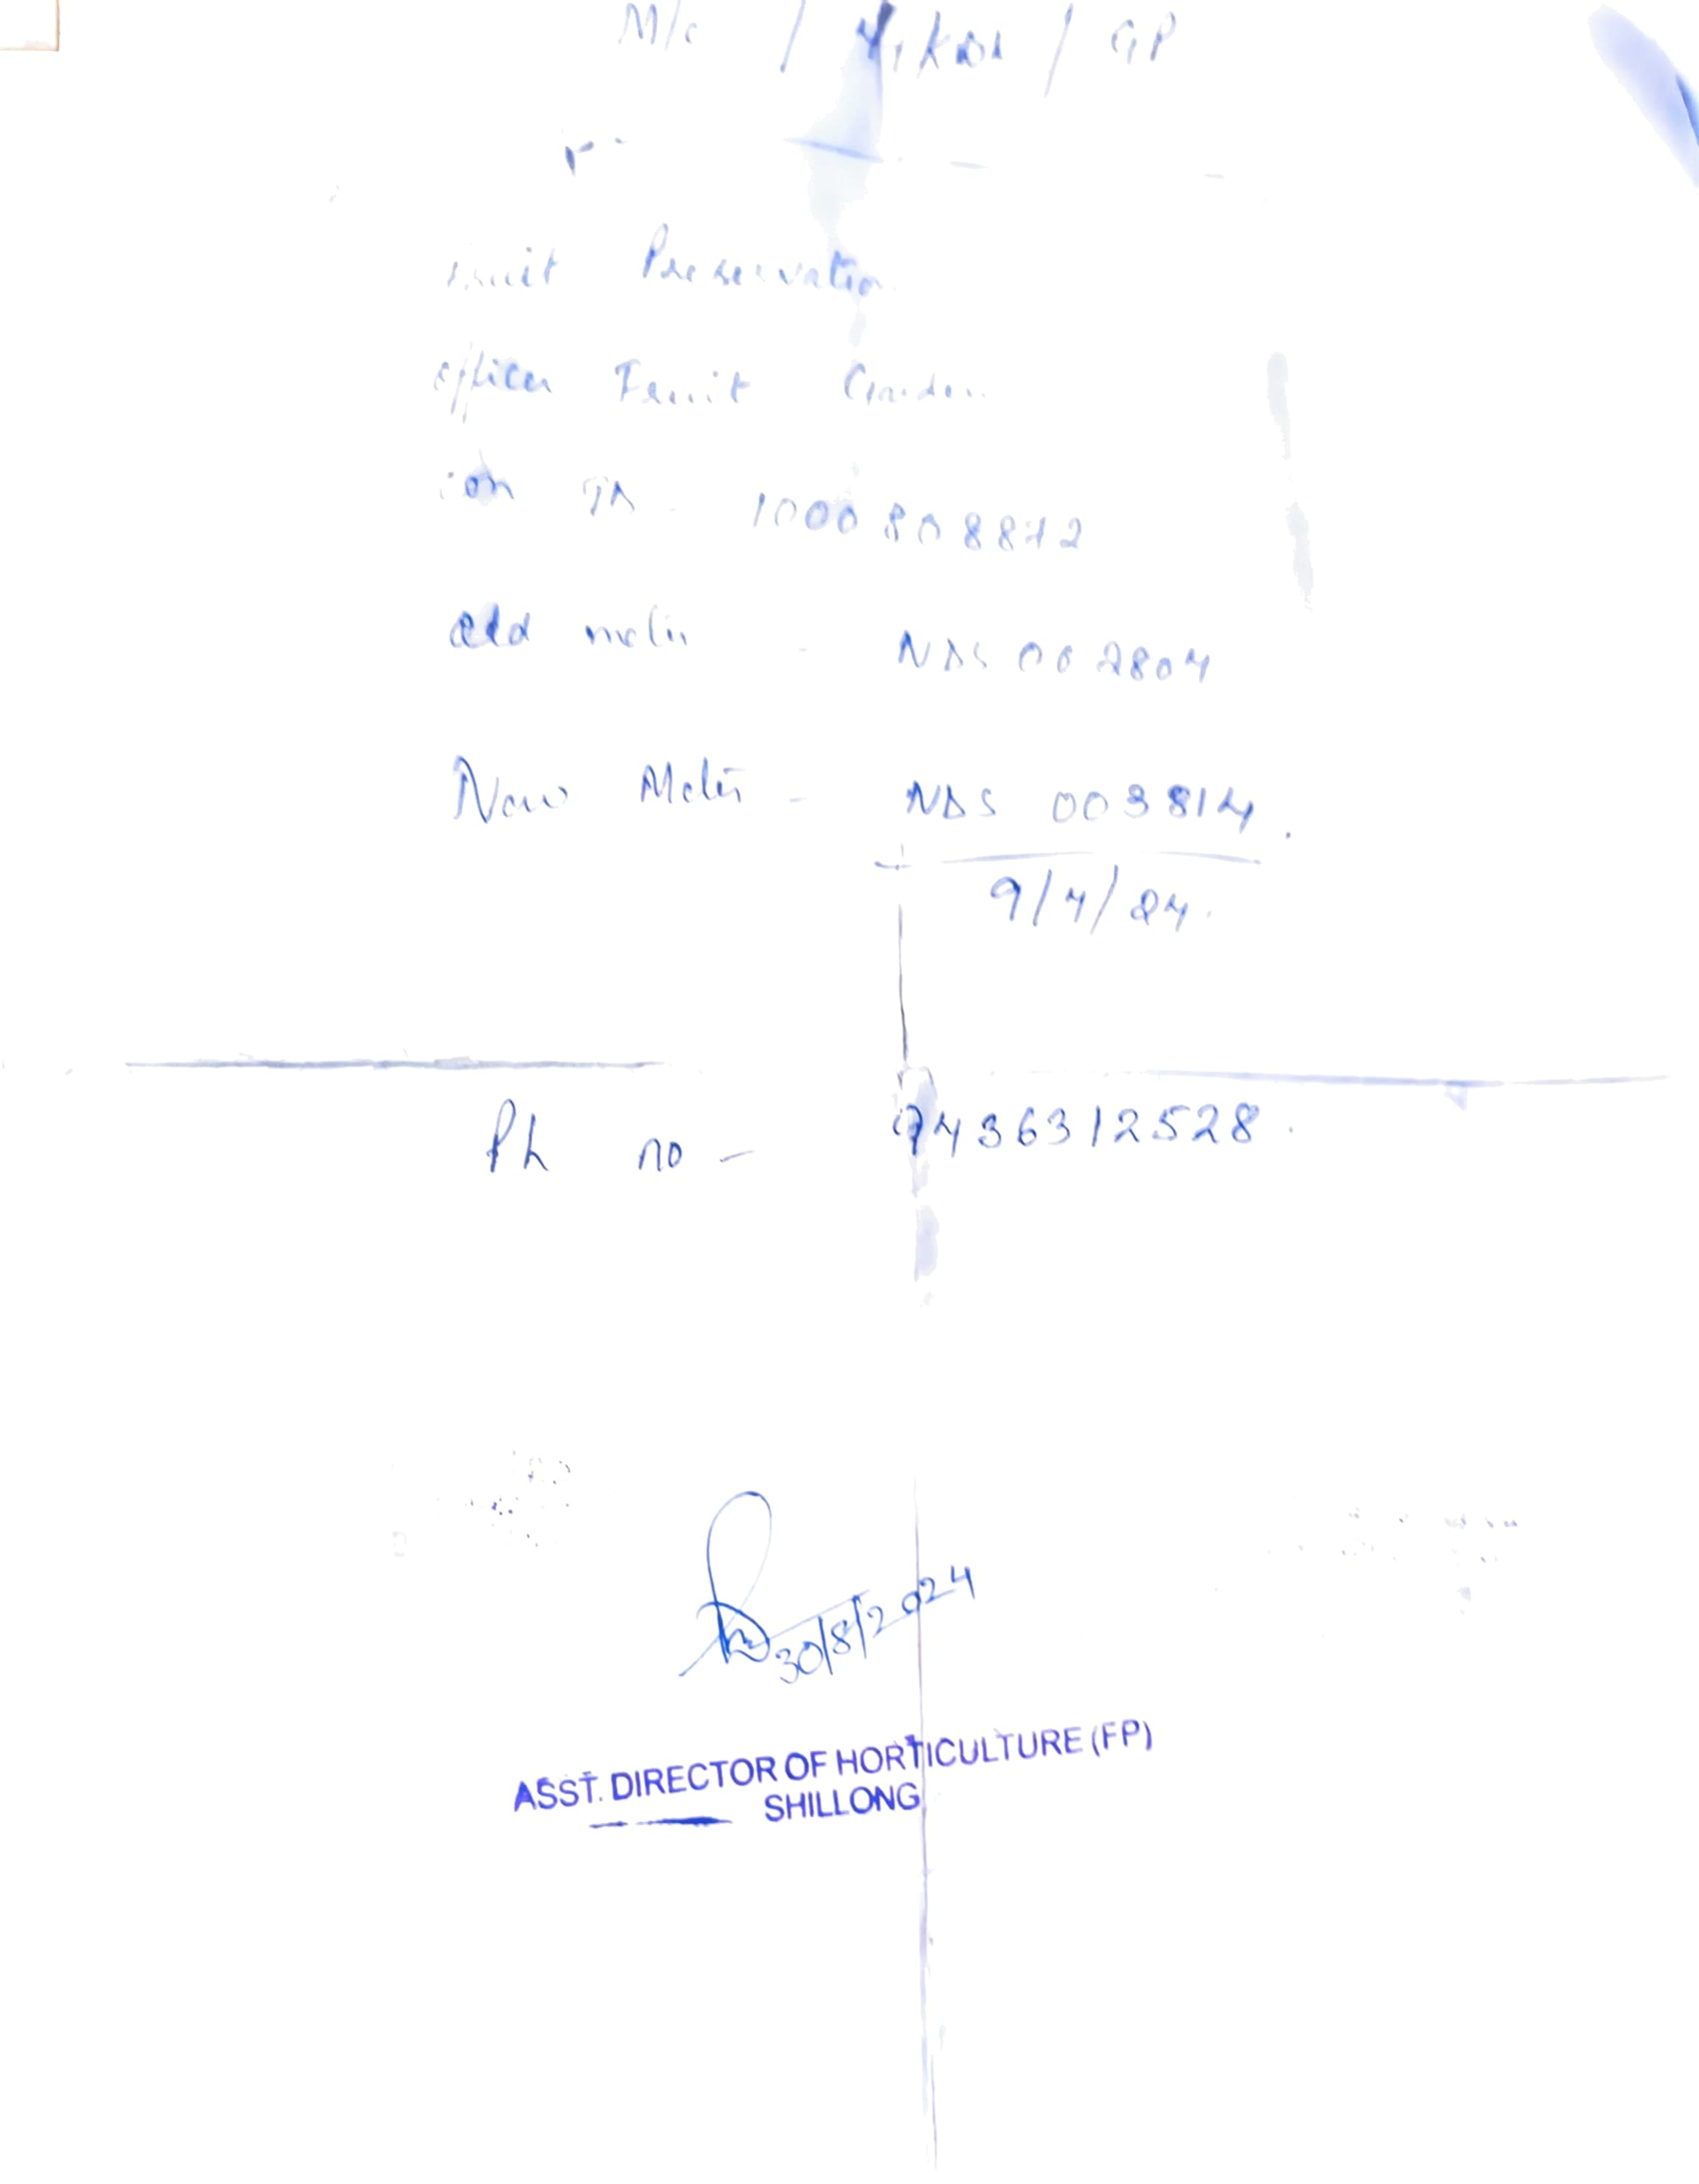 M/c / / GP
Preservation
Officer Fruit Garden
1000808872
old meter - NDS 002804
New Meter - NDS 003814.
9/4/24.
Ph no - 9436312528.
30/8/2024
ASST. DIRECTOR OF HORTICULTURE (FP)
SHILLONG